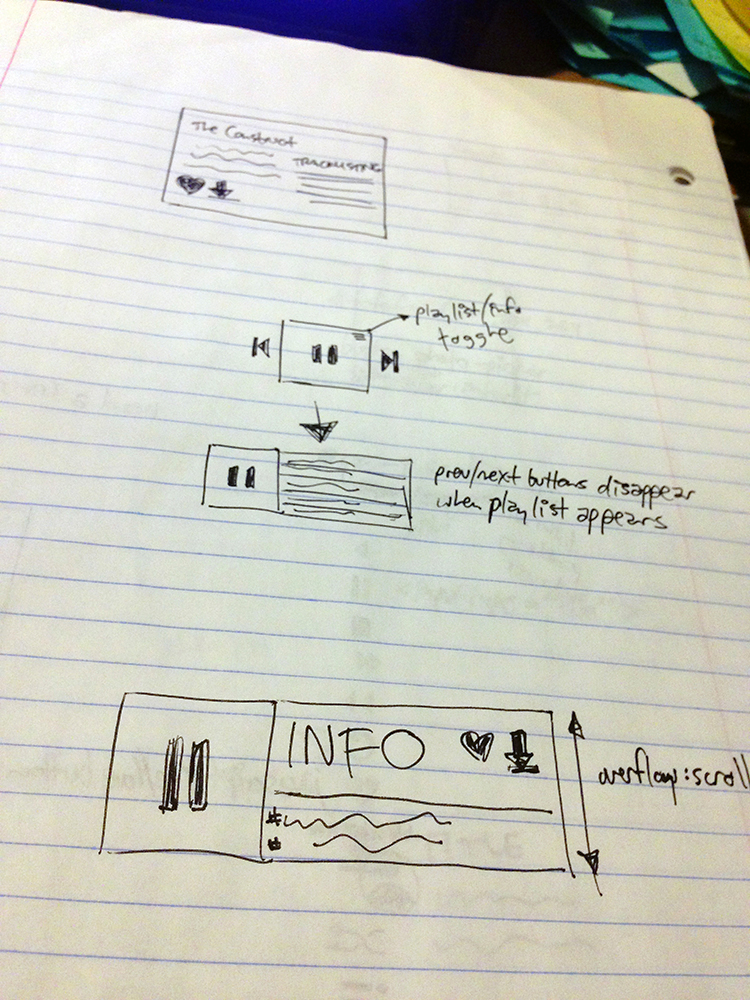 The Construct
TRACKLISTING
playlist/info
toggle
prev/next buttons disappear
when playlist appears
INFO
overflow:scroll
#
#